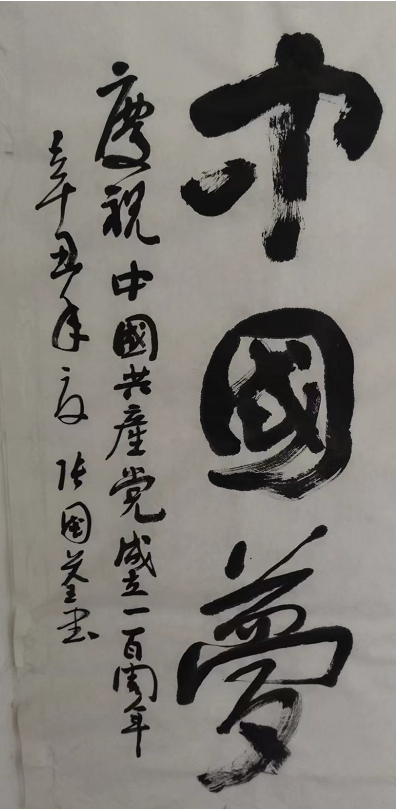 中國夢
慶祝中國共產党成立一百周年
辛丑年夏 張国荃书